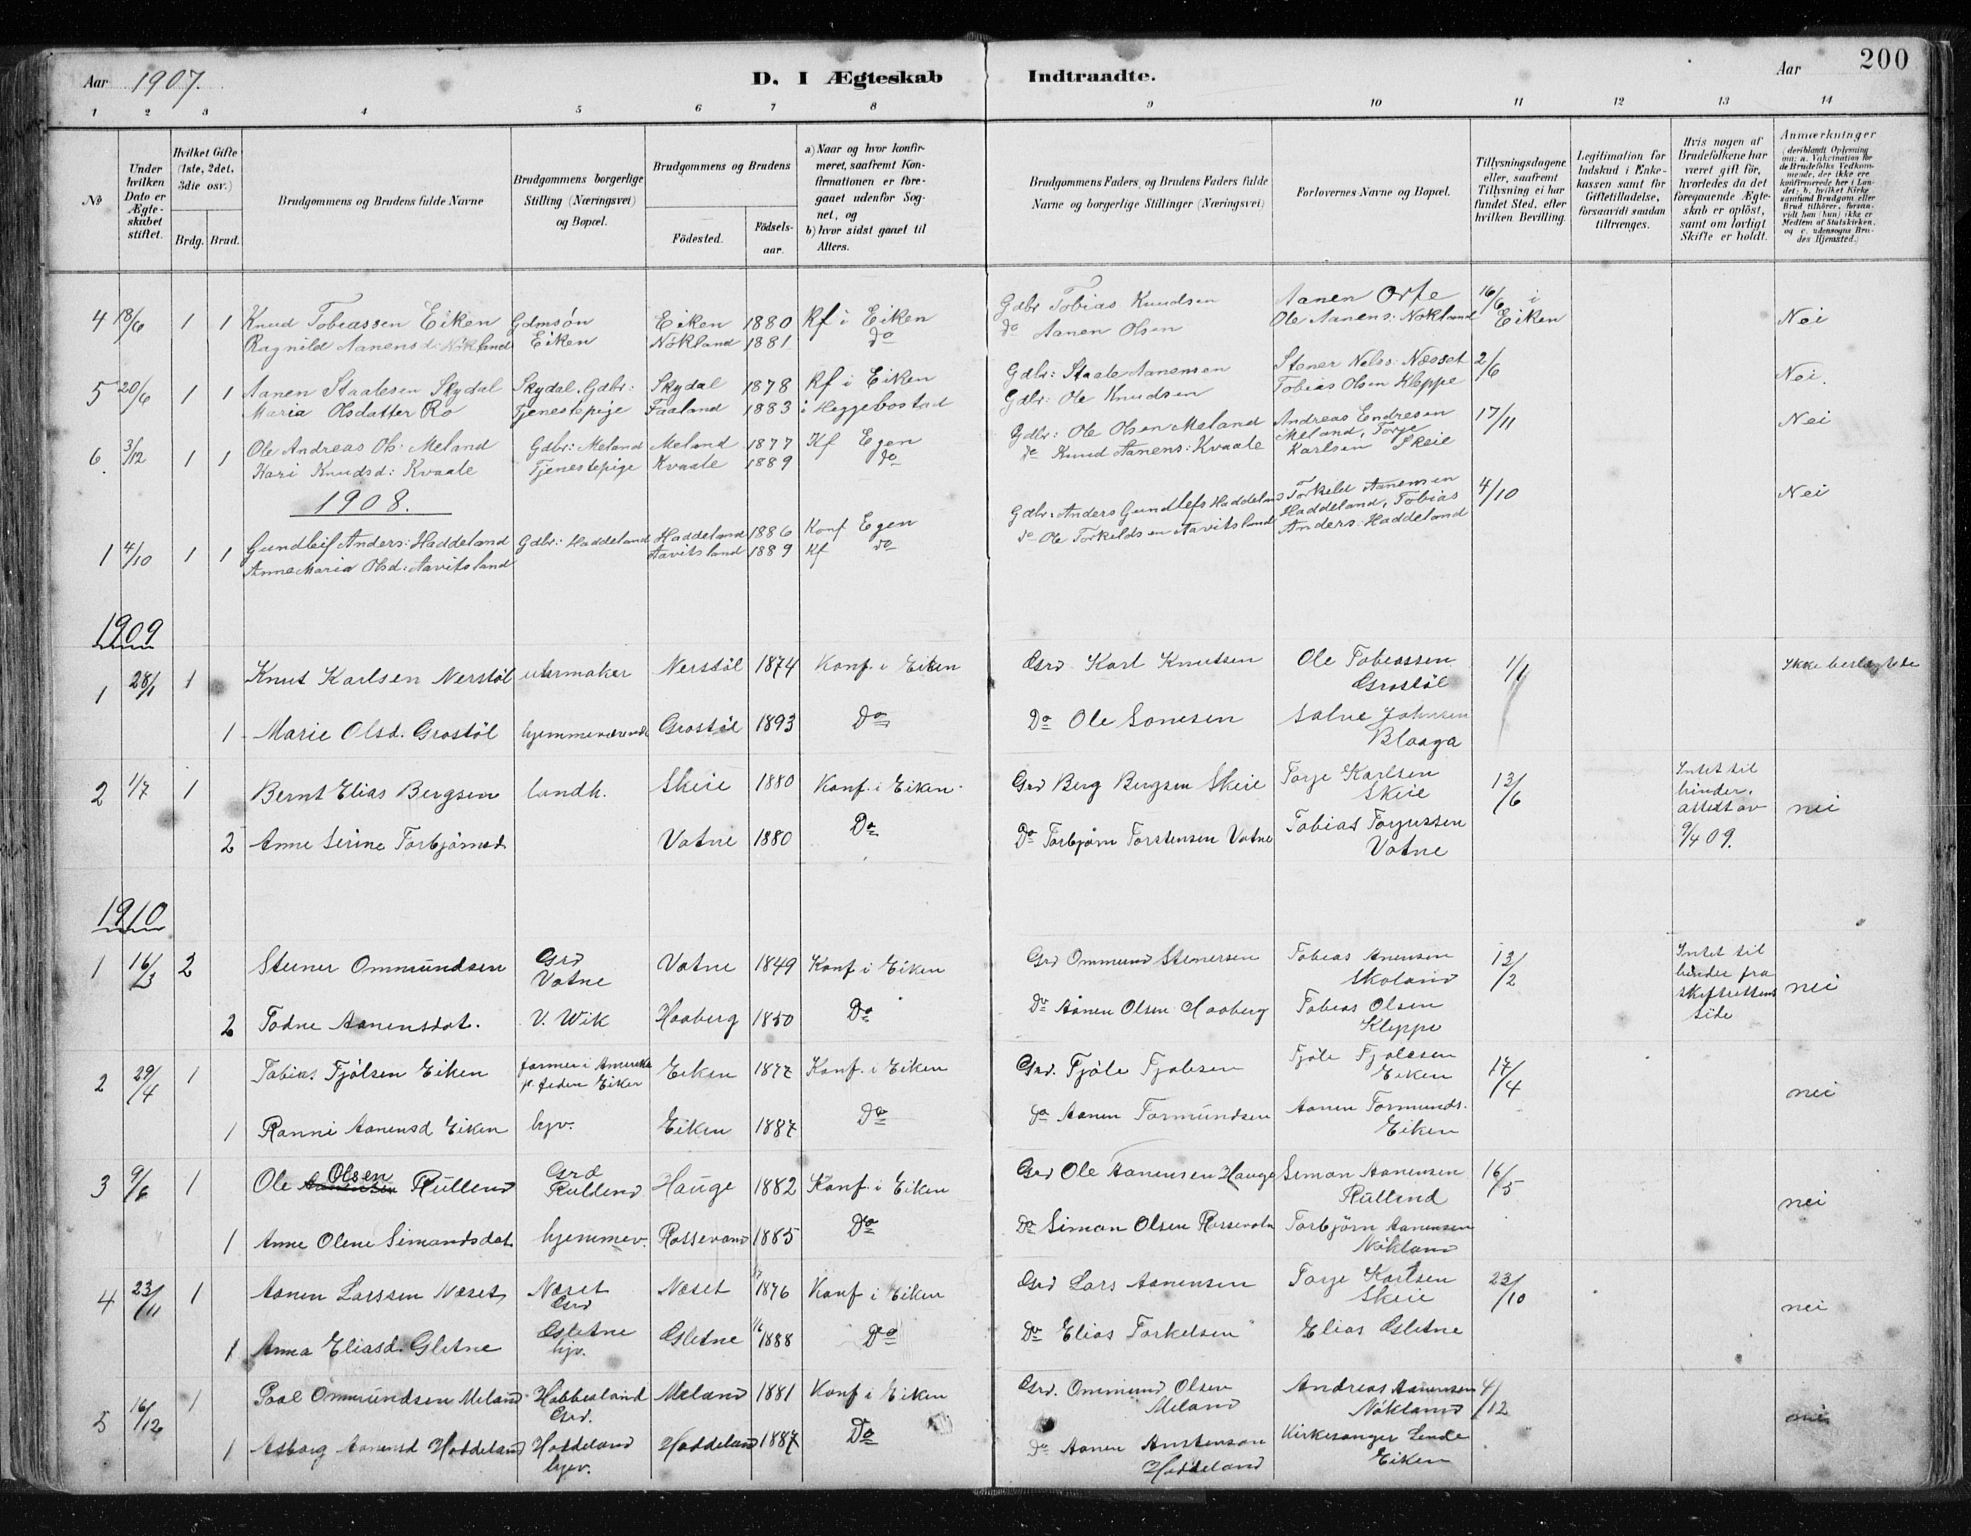 Aar 1907. D. I Ægteskab Indtraadte. Aar 200
1 2 3 4 5 6 7 8 9 10 11 12 13 14
No
Under hvilken Dato er Ægteskabet stiftet.
Hvilket Gifte (1ste, 2det, 3die osv.)
Brdg. Brud.
Brudgommens og Brudens fulde Navne
Brudgommens borgerlige Stilling (Næringsvei) og Bopæl.
Brudgommens og Brudens
Födested. Födselsaar.
a) Naar og hvor konfirmeret, saafremt Konfirmationen er foregaaet udenfor Sognet, og
b) hvor sidst gaaet til Alters.
Brudgommens Faders, og Brudens Faders fulde Navne og borgerlige Stillinger (Næringsvei)
Forlovernes Navne og Bopæl.
Tillysningsdagene eller, saafremt Tillysning ei har fundet Sted, efter hvilken Bevilling.
Legitimation for Indskud i Enkekassen samt for Giftetilladelse, forsaavidt saadan tiltrænges.
Hvis nogen af Brudefolkene har været gift för, hvorledes da det foregaaende Ægteskab er oplöst, samt om lovligt Skifte er holdt.
Anmærkninger (deriblandt Oplysning om: a. Vakcination for de Brudefolks Vedkommende, der ikke ere konfirmerede her i Landet; b. hvilket Kirkesamfund Brudgom eller Brud tilhörer, forsaavidt han (hun) ikke er Medlem af Statskirken, og c. udensogns Brudes Hjemsted.)
4 18/6 1 1 Knud Tobiassen Eiken Gdmsøn Eiken 1880 Kf i Eiken Gdbr Tobias Knudsen Aanen Orfe 16/6 i Nei
Ragnild Aanensd: Nökland Eiken Nökland 1881 do do Aanen Olsen Ole Aanens: Nökland Eiken
5 20/6 1 1 Aanen Staalesen Skydal Skydal. Gdbr: Skydal 1878 Kf i Eiken Gdbr: Staale Aanensen Stener Nels: Næsset 2/6 Nei.
Maria Olsdatter Rö Tjenestepige Faaland 1883 i Heggebostad Gdbr: Ole Knudsen Tobias Olsen Kleppe
6. 3/12 1 1 Ole Andreas Ols: Meland Gdbr: Meland Meland 1877 Kf Egen Gdbr: Ole Olsen Meland Andreas Endresen 17/11 Nei
Kari Knudsd: Kvaale Tjenestepige Kvaale 1889 do do Knud Aanens: Kvaale Meland, Torje
Karlsen Skeie
1908.
1 4/10 1 1 Gundleif Anders: Haddeland Gdbr: Haddeland Haddeland 1886 Konf Egen Gdbr: Anders Gundlefs Haddeland Torkeld Aanensen 4/10 Nei
Anne Maria Olsd: Aavitsland Aavitsland 1889 Kf do do Ole Torkeldsen Aavitsland Haddeland, Tobias
Anders: Haddeland
1909
1 28/1 1 Knut Karlsen Nerstöl urmaker Nerstöl 1874 Konf. i Eiken Grd. Karl Knutsen Ole Tobiassen 1/1 Ikke
Grostöl
1 Marie Olsd. Grostöl hjemmeværende Grostöl 1893 Do Do Ole
Blaaga
2 1/7 1 Bernt Elias Bergsen landh. Skeie 1880 Konf. i Eiken Grd Berg Bergsen Skeie Torje Karlsen 13/6 Intet til
Skeie hinder, attest av nei
2 Anne Serine Torbjörnsd Vatne 1880 Do Do Torbjörn Torstensen Vatne Tobias Torjussen 9/4 09.
Vatne
1910
1 16/3 2 Steiner Ommundsen Grd Vatne 1849 Konf i Eiken Grd Ommund Stenersen Tobias Anensen 13/2 Intet til
Vatne Skoland hinder fra nei
2 Todne Aanensdat. V. Wik Haaberg 1850 Do Do Aanen Olsen Haaberg Tobias Olsen skifterettens
Kleppe side
2 29/4 1 Tobias. Fjölsen Eiken farmer i Amerika Eiken 1877 Konf. i Eiken Grd. Fjöle Fjolesen Fjöle Fjolesen 17/4 nei
Eiken
1 Ranni Aanensd Eiken hjv. Eiken 1887 Do do Aanen Tormundsen Aanen Tormunds.
Eiken
3 9/6 1 Ole Olsen Rullend Grd Hauge 1882 Konf. i Eiken Grd Ole Aanensen Hauge Simon Aanensen 16/5 nei
Rullend Rullend
1 Anne Olene Simondsdat. hjemmev. Rossevand 1885 Do Do Simon Olsen Torbjörn Aanensen
Nökland
4 23/11 1 Aanen Larssen Næset Næset Næset 1876 Konf i Eiken Grd Lars Aanensen Torje Karlsen 23/10 nei
Grd Skeie
1 Anna Eliasd. Gletne Gletne Gletne 1888 Do Do Elias Torkelsen Elias Gletne
hjv.
5 16/12 1 Paal Ommundsen Meland Hobbesland Meland 1881 Konf i Eiken Grd. Ommund Olsen Andreas Aanensen 4/12 nei
Grd. Meland Nökland
1 Asborg Aanensd Haddeland Haddeland Haddeland 1887 Do Do Aanen Anstensen Kirkesanger Lende
hjv. Haddeland Eiken